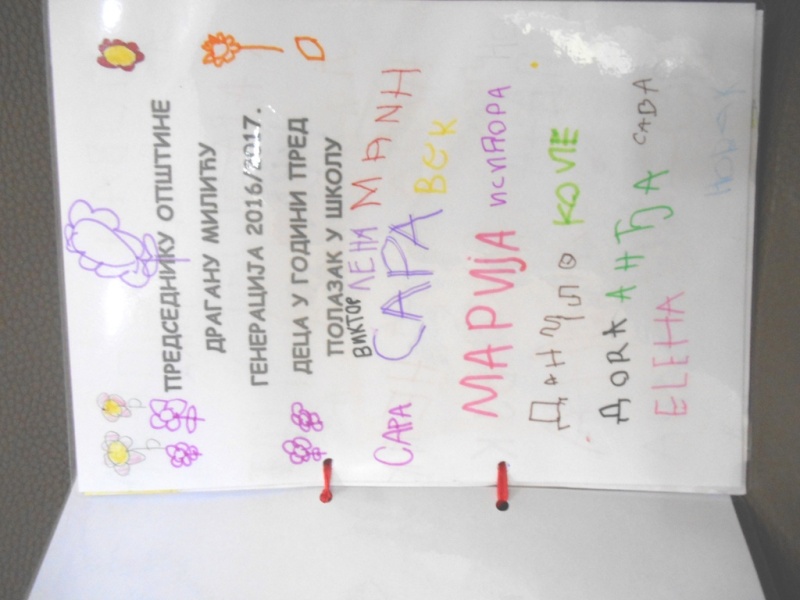 ПРЕДСЕДНИКУ ОПШТИНЕ
ДРАГАНУ МИЛИЋУ
ГЕНЕРАЦИЈА 2016/2017.
ДЕЦА У ГОДИНИ ПРЕД
ПОЛАЗАК У ШКОЛУ
ВИКТОР ЛЕНИ МАNН
САРА САРА ВСК
МАРИЈА
ДАНЧЛО
ДОRА АНЂА САВА
ЕLЕНА